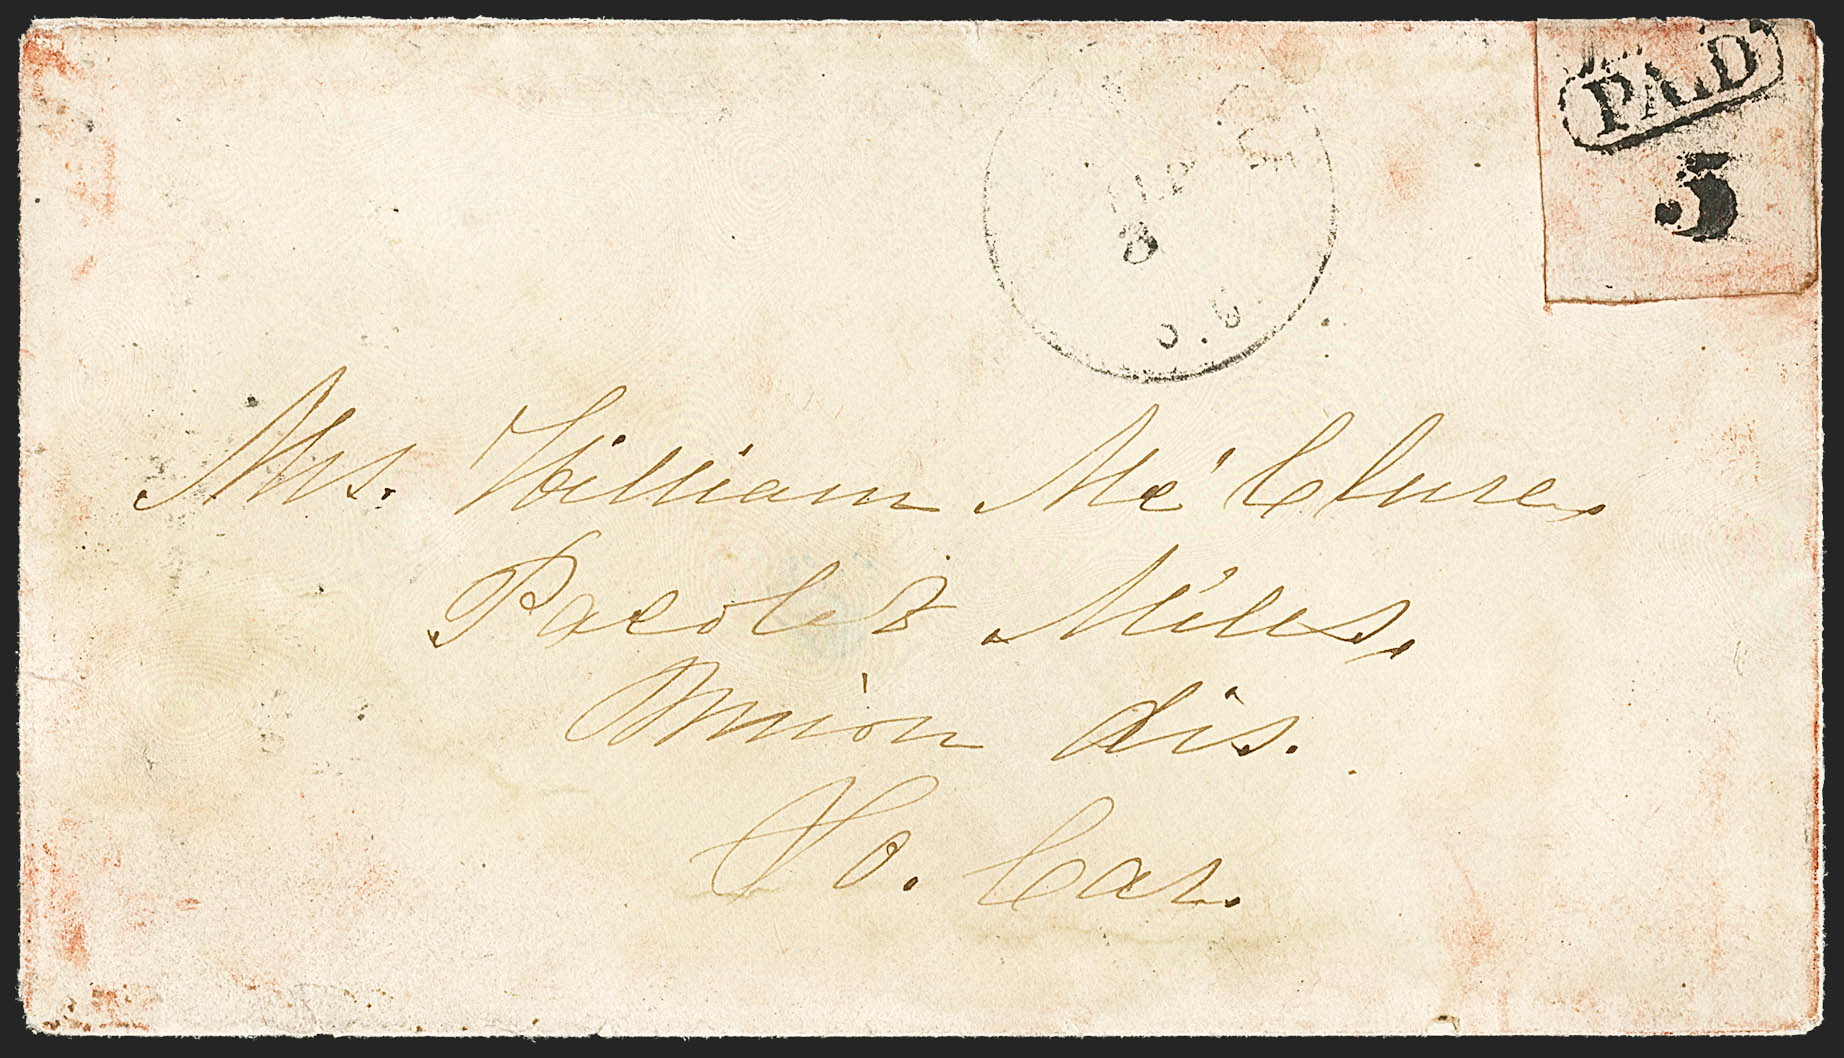 PAID
5
SEP
3
Mrs. William Mc'Clure,
Pacolet Mills,
Union dis.
So. Car.